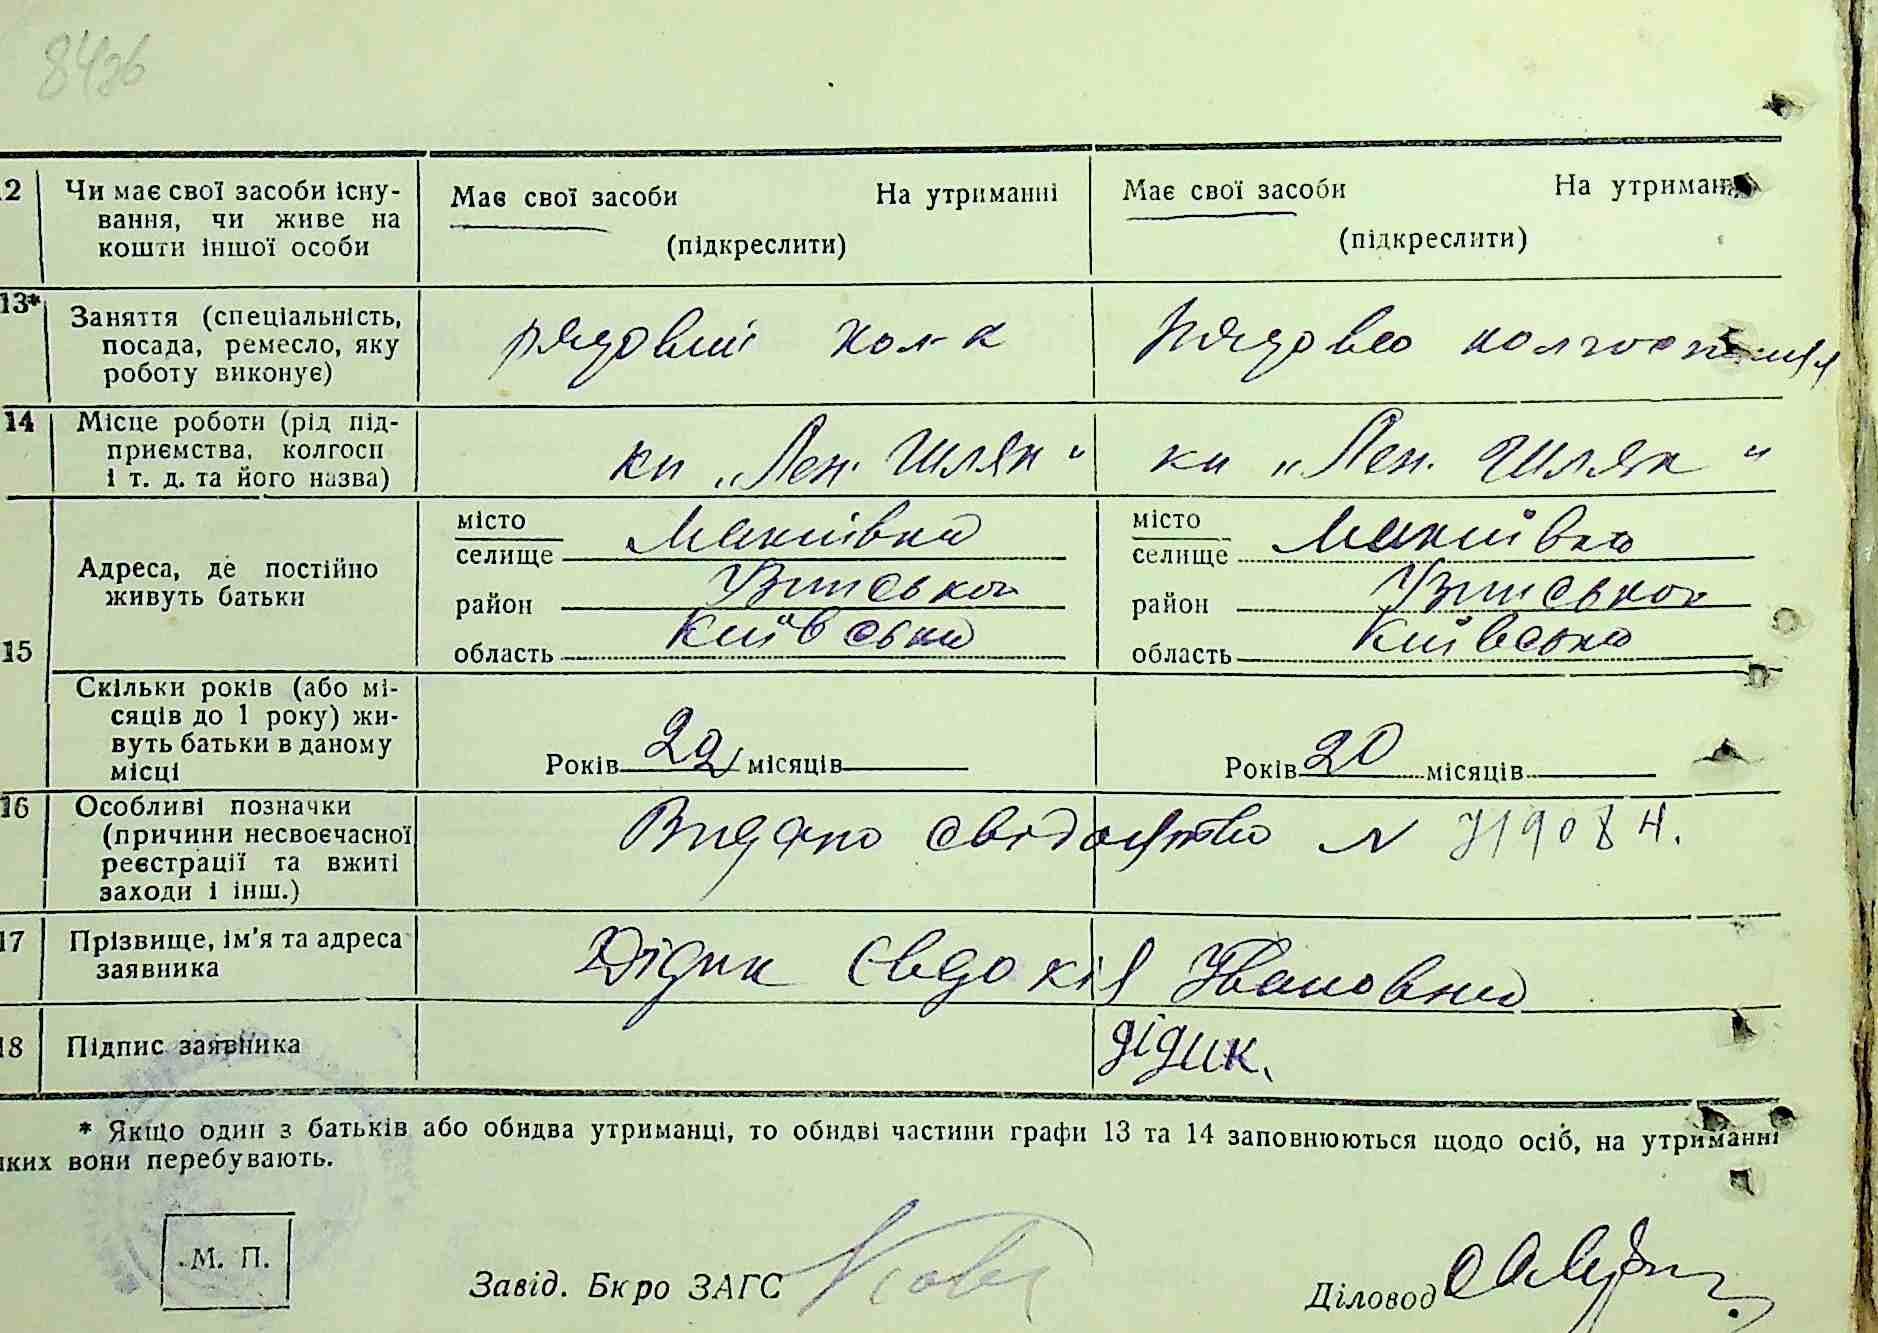 84зв
12 Чи має свої засоби існу-
вання, чи живе на
кошти іншої особи
Має свої засоби На утриманні
(підкреслити)
Має свої засоби На утриман
(підкреслити)
13* Заняття (спеціальність,
посада, ремесло, яку
роботу виконує)
рядовий кол-к
рядова колгоспниця
14 Місце роботи (рід під-
приємства, колгосп
і т. д. та його назва)
кп „Лен. Шлях"
кп „Лен. Шлях"
15 Адреса, де постійно
живуть батьки
місто
селище Макіївка
район Узинської
область Київська
місто
селище Макіївка
район Узинської
область Київська
Скільки років (або мі-
сяців до 1 року) жи-
вуть батьки в даному
місці
Років 22 місяців
Років 20 місяців
16 Особливі позначки
(причини несвоєчасної
реєстрації та вжиті
заходи і інш.)
Видано свідоцтво N 719084.
17 Прізвище, ім'я та адреса
заявника
Дідик Євдокія Івановна
18 Підпис заявника
дідик.
* Якщо один з батьків або обидва утриманці, то обидві частини графи 13 та 14 заповнюються щодо осіб, на утриманні
яких вони перебувають.
М. П.
Завід. Бюро ЗАГС
Діловод